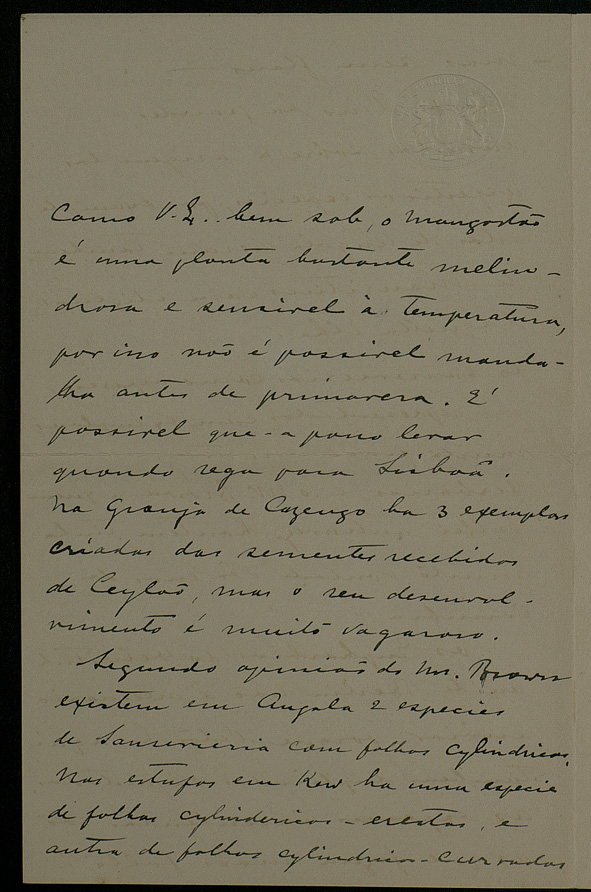 Como V. Ex. bem sab, o mangostão
é uma planta bastante melin-
drosa e sensivel à temperatura,
por isso não é possivel manda-
lha antes de primavera. É
possivel que-a posso levar
quando sega para Lisboa.
Na Granja de Cazengo ha 3 exemplas
criadas das sementes recebidas
de Ceylão, mas o seu desenvol-
vimento é muito vagaroso.
Segundo opinião do Mr. Brown
existem em Angola 2 especies
de Sansevieria com folhas cylindricas.
Nas estufas em Kew ha uma especie
de folhas cylindericas-erectas, e
outra de folhas cylindricas-curvadas